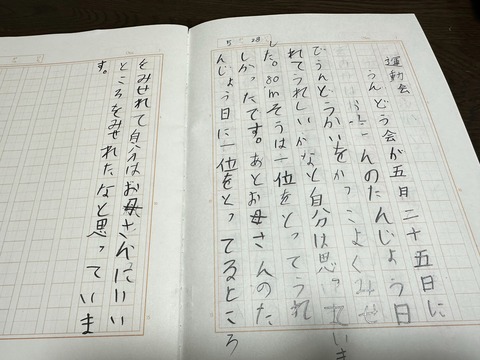 5 28
運動会
うんどう会が五月二十五日に
んのたんじょう日
でうんどうかいをかっこよくみせ
れてうれしいかなと自分は思っていま
した。80mそうは一位をとってうれ
しかったです。あとお母さんのた
んじょう日に一位をとってるところ
をみせれて自分はお母さんにいい
ところをみせれたなと思っていま
す。